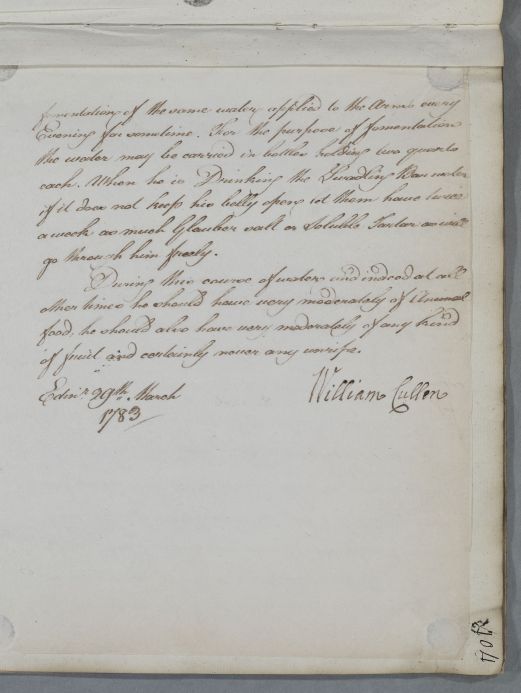 fomentation of the same water applied to the Arms every
Evening for sometime. For the purpose of fomentation
the water may be carried in bottles holding two quarts
each. When he is Drinking the water
if it does not keep his belly open let them have twice
a week as much Glauber salt or Soluble Tartar as will
go through him freely.
During this course of waters and indeed at all
other times he should have very moderately of Animal
food, he should also have very moderately of any kind
of fruit and certainly never any unripe.
Edinr 29th March
1783
William Cullen